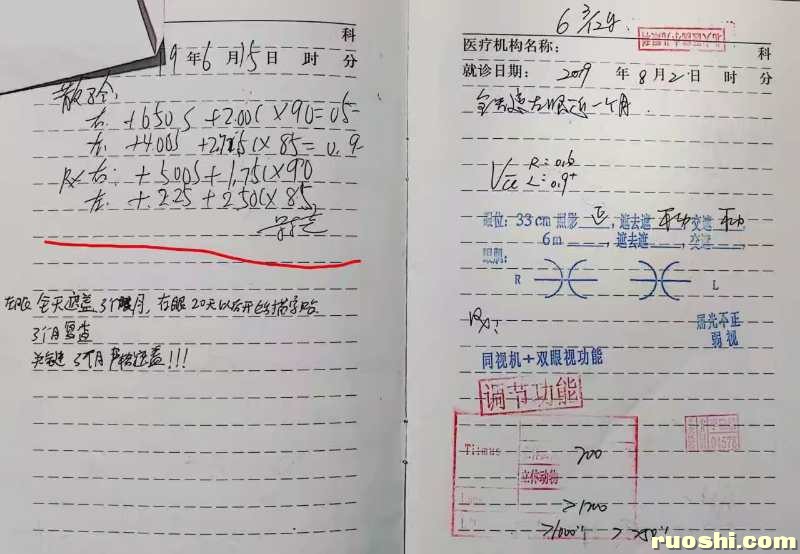 科
19 年 6 月 15 日 时 分
散验:
右: +6.50S +2.00C×90=0.5
左: +4.00S +2.75C×85=0.9
Rx 右: +5.00S+1.75C×90
左: +2.25 +2.50C×85
左眼全天遮盖3个月, 右眼20天以后开始描字贴
3个月复查
关键 3个月严格遮盖!!!
6 3/12岁
科
医疗机构名称:
就诊日期: 2019 年 8 月 21 日 时 分
全天遮左眼近一个月.
R=0.6
L=0.9+
眼位: 33cm 照影 正, 遮去遮 不动 交遮 不动
6m , 遮去遮 , 交遮
眼肌:
R L
Rx:
屈光不正
弱视
同视机+双眼视功能
调节功能
Titmus
立体动物
200
>1200
04578
ruoshi.com